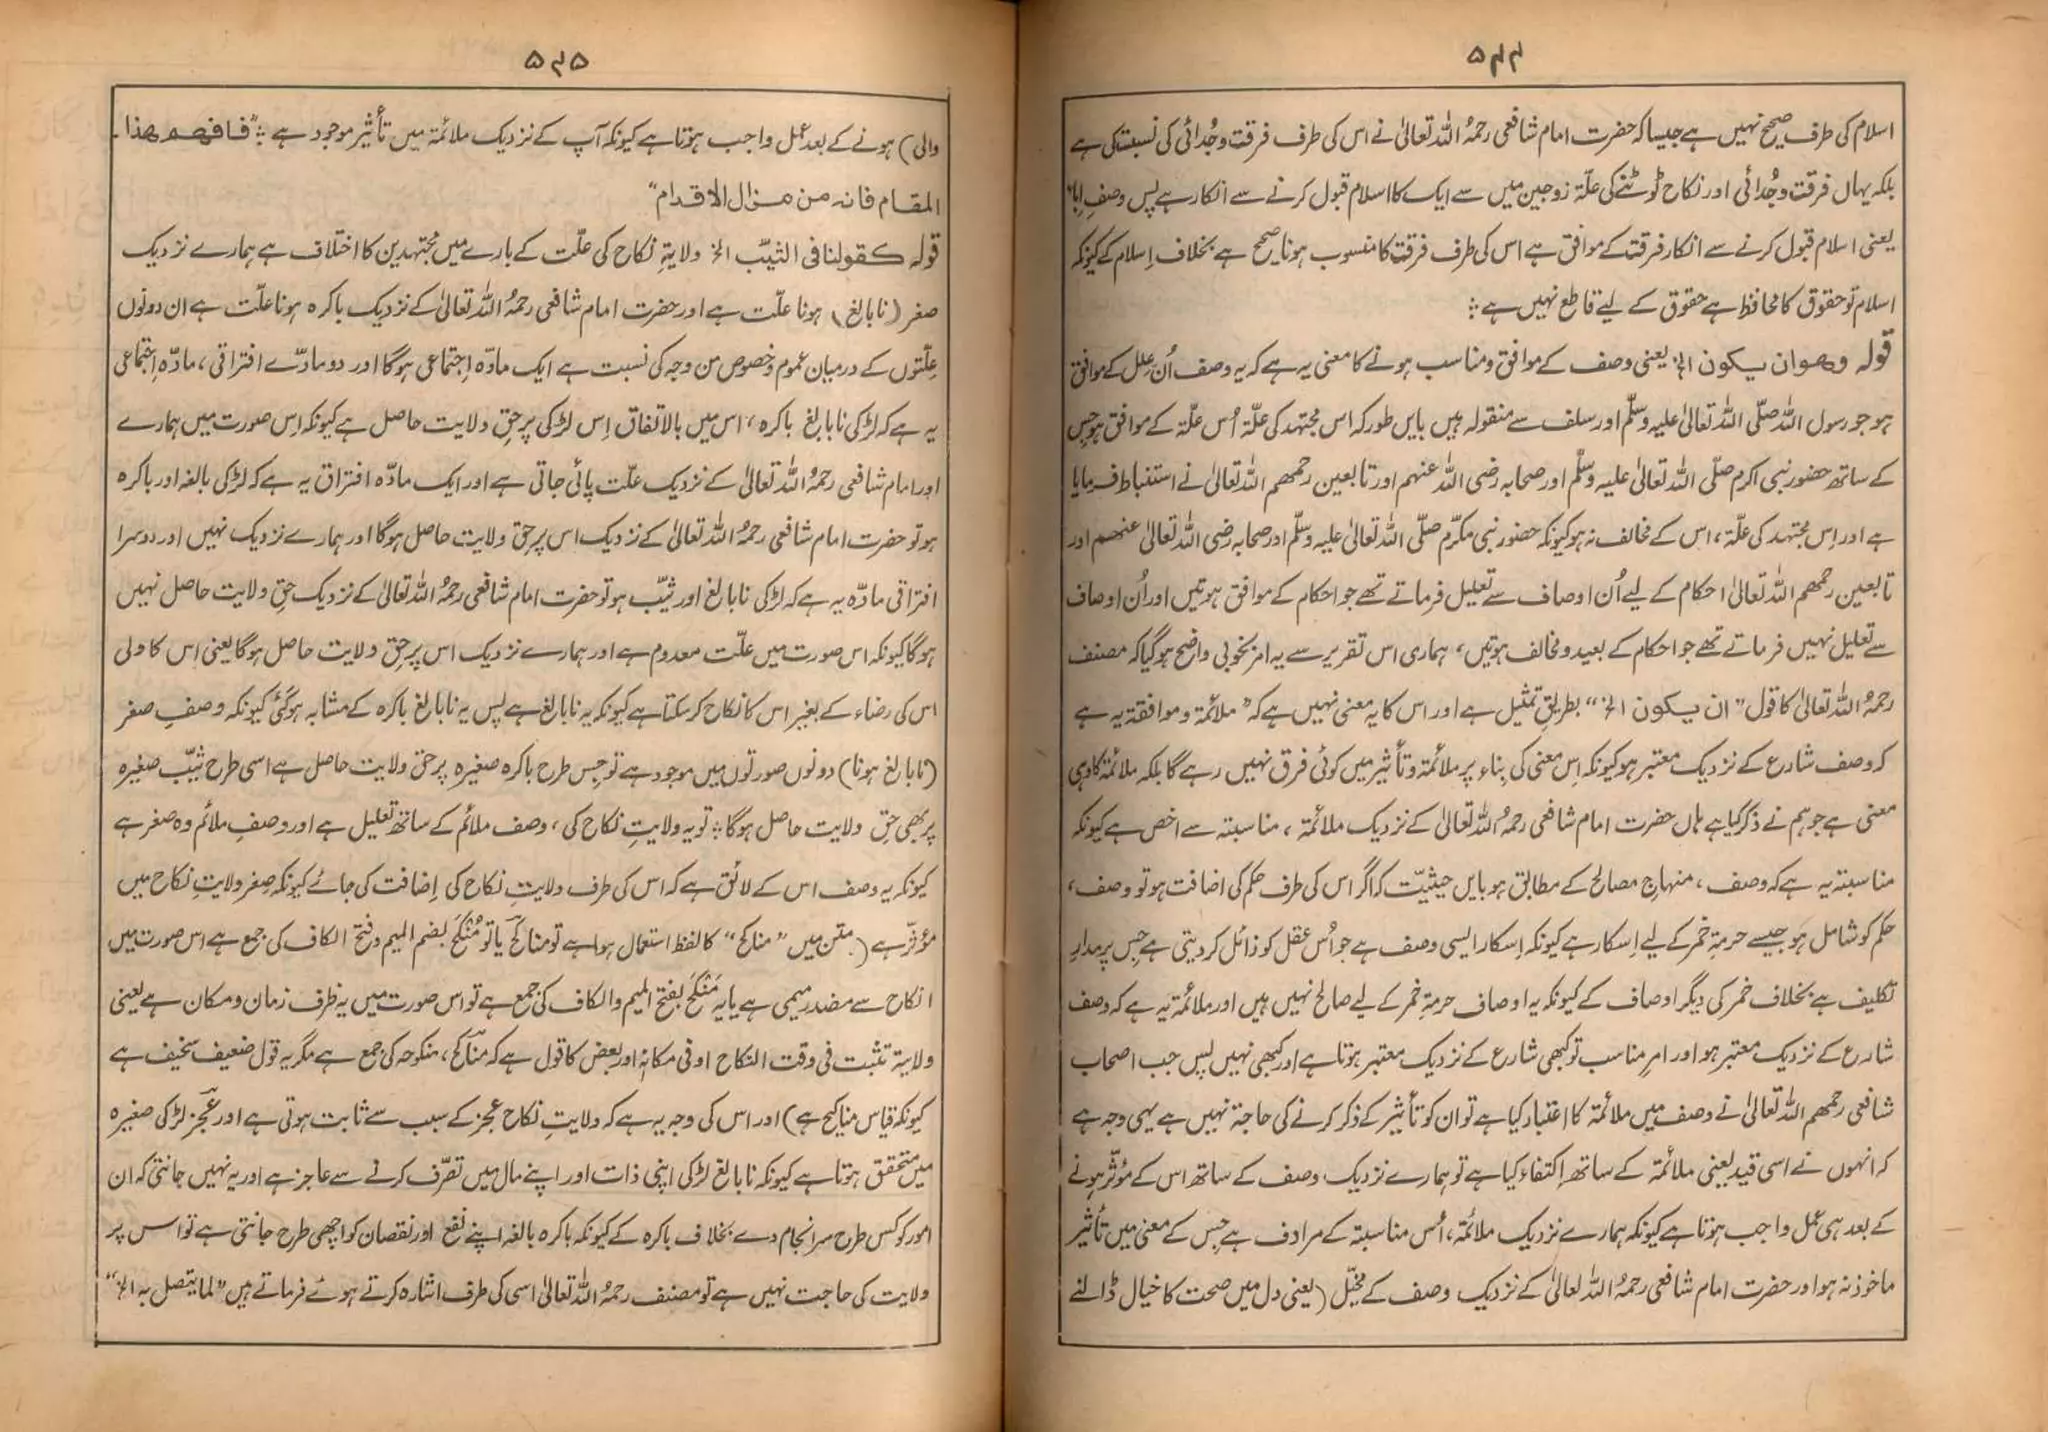 ۵۴۴
اسلام کی طرف صحیح نہیں ہے جیسا کہ حضرت امام شافعی رحمہُ اللہ تعالیٰ نے اس کی طرف فرقت و جُدائی کی نسبت کی ہے
بلکہ یہاں فرقت و جُدائی اور نکاح ٹوٹنے کی علّۃ زوجین میں سے ایک کا اسلام قبول کرنے سے انکار ہے پس وصفِ اباء
یعنی اسلام قبول کرنے سے انکار فرقت کے موافق ہے اس کی طرف فرقت کا منسوب ہونا صحیح ہے بخلاف اِسلام کے کیونکہ
اسلام تو حقوق کا محافظ ہے حقوق کے لیے قاطع نہیں ہے ؛
قولہ وھو ان یکون الخ یعنی وصف کے موافق و مناسب ہونے کا معنی یہ ہے کہ یہ وصف اُن علل کے موافق
ہو جو رسول اللہ صلّی اللہ تعالیٰ علیہ وسلّم اور سلف سے منقولہ ہیں بایں طور کہ اس مجتہد کی علّۃ اُس علّۃ کے موافق ہو جس
کے ساتھ حضور نبی اکرم صلّی اللہ تعالیٰ علیہ وسلّم اور صحابہ رضی اللہ عنہم اور تابعین رحمھم اللہ تعالیٰ نے استنباط فرمایا
ہے اور اِس مجتہد کی علّۃ ، اس کے مخالف نہ ہو کیونکہ حضور نبی مکرّم صلّی اللہ تعالیٰ علیہ وسلّم اور صحابہ رضی اللہ تعالیٰ عنھم اور
تابعین رحمھم اللہ تعالیٰ احکام کے لیے اُن اوصاف سے تعلیل فرماتے تھے جو احکام کے موافق ہوتیں اور اُن اوصاف
سے تعلیل نہیں فرماتے تھے جو احکام کے بعید و مخالف ہوتیں ، ہماری اس تقریر سے یہ امر بخوبی واضح ہو گیا کہ مصنف
رحمہُ اللہ تعالیٰ کا قول " ان یکون الخ " بطریقِ تمثیل ہے اور اس کا یہ معنی نہیں ہے کہ " ملائمۃ و موافقۃ یہ ہے
کہ وصف شارع کے نزدیک معتبر ہو کیونکہ اِس معنی کی بِناء پر ملائمۃ و تأثیر میں کوئی فرق نہیں رہے گا بلکہ ملائمۃ کا وہی
معنی ہے جو ہم نے ذکر کیا ہے ہاں حضرت امام شافعی رحمہُ اللہ تعالیٰ کے نزدیک ملائمۃ ، مناسبتہ سے اخص ہے کیونکہ
مناسبتہ یہ ہے کہ وصف ، منہاجِ مصالح کے مطابق ہو بایں حیثیّت کہ اگر اس کی طرف حکم کی اضافت ہو تو وصف ،
حکم کو شامل ہو جیسے حرمۃِ خمر کے لیے اِسکار ہے کیونکہ اِسکار ایسی وصف ہے جو اُس عقل کو زائل کر دیتی ہے جس پر مدارِ
تکلیف ہے بخلاف خمر کی دیگر اوصاف کے کیونکہ یہ اوصاف حرمۃِ خمر کے لیے صالح نہیں ہیں اور ملائمۃ یہ ہے کہ وصف
شارع کے نزدیک معتبر ہو اور امرِ مناسب تو کبھی شارع کے نزدیک معتبر ہوتا ہے اور کبھی نہیں پس جب اصحاب
شافعی رحمھم اللہ تعالیٰ نے وصف میں ملائمۃ کا اعتبار کیا ہے تو ان کو تأثیر کے ذکر کرنے کی حاجۃ نہیں ہے یہی وجہ ہے
کہ انہوں نے اسی قید یعنی ملائمۃ کے ساتھ اِکتفاء کیا ہے تو ہمارے نزدیک وصف کے ساتھ اس کے مؤثّر ہونے
کے بعد ہی عمل واجب ہوتا ہے کیونکہ ہمارے نزدیک ملائمۃ ، اُس مناسبتہ کے مرادف ہے جس کے معنی میں تأثیر
ماخوذ نہ ہو اور حضرت امام شافعی رحمہُ اللہ تعالیٰ کے نزدیک وصف کے مخیّل (یعنی دل میں صحت کا خیال ڈالنے
۵۴۵
والی) ہونے کے بعد عمل واجب ہوتا ہے کیونکہ آپ کے نزدیک ملائمۃ میں تأثیر موجود ہے ؛ "فافھم ھذا
المقام فانہ من مزال الاقدام"
قولہ کقولنا فی الثیّب الخ ولایۃِ نکاح کی علّت کے بارے میں مجتہدین کا اختلاف ہے ہمارے نزدیک
صغر (نابالغ) ہونا علّت ہے اور حضرت امام شافعی رحمہُ اللہ تعالیٰ کے نزدیک باکرہ ہونا علّت ہے ان دونوں
علّتوں کے درمیان عموم و خصوص من وجہ کی نسبت ہے ایک مادّہ اِجتماعی ہوگا اور دو مادّے افتراقی ، مادّہ اِجتماعی
یہ ہے کہ لڑکی نابالغ باکرہ ، اس میں بالاتفاق اِس لڑکی پر حقِ ولایت حاصل ہے کیونکہ اِس صورت میں ہمارے
اور امام شافعی رحمہُ اللہ تعالیٰ کے نزدیک علّت پائی جاتی ہے اور ایک مادّہ افتراق یہ ہے کہ لڑکی بالغہ اور باکرہ
ہو تو حضرت امام شافعی رحمہُ اللہ تعالیٰ کے نزدیک اس پر حقِ ولایت حاصل ہوگا اور ہمارے نزدیک نہیں اور دوسرا
افتراقی مادّہ یہ ہے کہ لڑکی نابالغ اور ثیّب ہو تو حضرت امام شافعی رحمہُ اللہ تعالیٰ کے نزدیک حقِ ولایت حاصل نہیں
ہوگا کیونکہ اس صورت میں علّت معدوم ہے اور ہمارے نزدیک اس پر حقِ ولایت حاصل ہوگا یعنی اِس کا ولی
اس کی رضاء کے بغیر اس کا نکاح کر سکتا ہے کیونکہ یہ نابالغ ہے پس یہ نابالغ باکرہ کے مشابہ ہو گئی کیونکہ وصفِ صغر
(نابالغ ہونا) دونوں صورتوں میں موجود ہے تو جس طرح باکرہ صغیرہ پر حق ولایت حاصل ہے اسی طرح ثیّب صغیرہ
پر بھی حق ولایت حاصل ہوگا ؛ تو یہ ولایتِ نکاح کی ، وصف ملائم کے ساتھ تعلیل ہے اور وصفِ ملائم وہ صغر ہے
کیونکہ یہ وصف اس کے لائق ہے کہ اس کی طرف ولایتِ نکاح کی اِضافت کی جائے کیونکہ صِغر ولایتِ نکاح میں
مؤثّر ہے (متن میں " مناکح " کا لفظ استعمال ہوا ہے تو مناکح یا تو مُنْکَح بضم المیم و فتح الکاف کی جمع ہے اس صورت میں
انکاح سے مصدر میمی ہے یا یہ مَنْکَح بفتح المیم والکاف کی جمع ہے تو اس صورت میں یہ ظرف زمان و مکان ہے یعنی
ولایۃ تثبت فی وقت النکاح او فی مکانہٖ اور بعض کا قول ہے کہ مناکح ، منکوحہ کی جمع ہے مگر یہ قول ضعیف سخیف ہے
کیونکہ قیاس مناکیح ہے) اور اس کی وجہ یہ ہے کہ ولایتِ نکاح عجز کے سبب سے ثابت ہوتی ہے اور عجز لڑکی صغیرہ
میں متحقق ہوتا ہے کیونکہ نابالغ لڑکی اپنی ذات اور اپنے مال میں تصرّف کرنے سے عاجز ہے اور یہ نہیں جانتی کہ ان
امور کو کس طرح سرانجام دے بخلاف باکرہ کے کیونکہ باکرہ بالغہ اپنے نفع اور نقصان کو اچھی طرح جانتی ہے تو اس پر
ولایت کی حاجت نہیں ہے تو مصنف رحمہُ اللہ تعالیٰ اسی کی طرف اشارہ کرتے ہوئے فرماتے ہیں "لما یتصل بہ الخ"